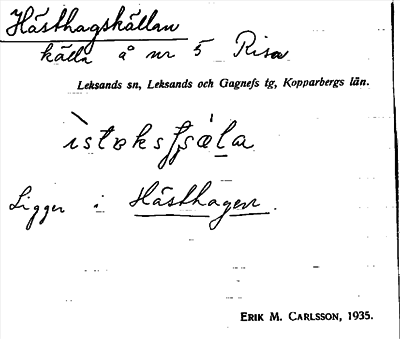 Hästhagskällan
källa å nr 5 Risa
Leksands sn, Leksands och Gagnefs tg, Kopparbergs län.
Ligger i Hästhagen.
ERIK M. CARLSSON, 1935.